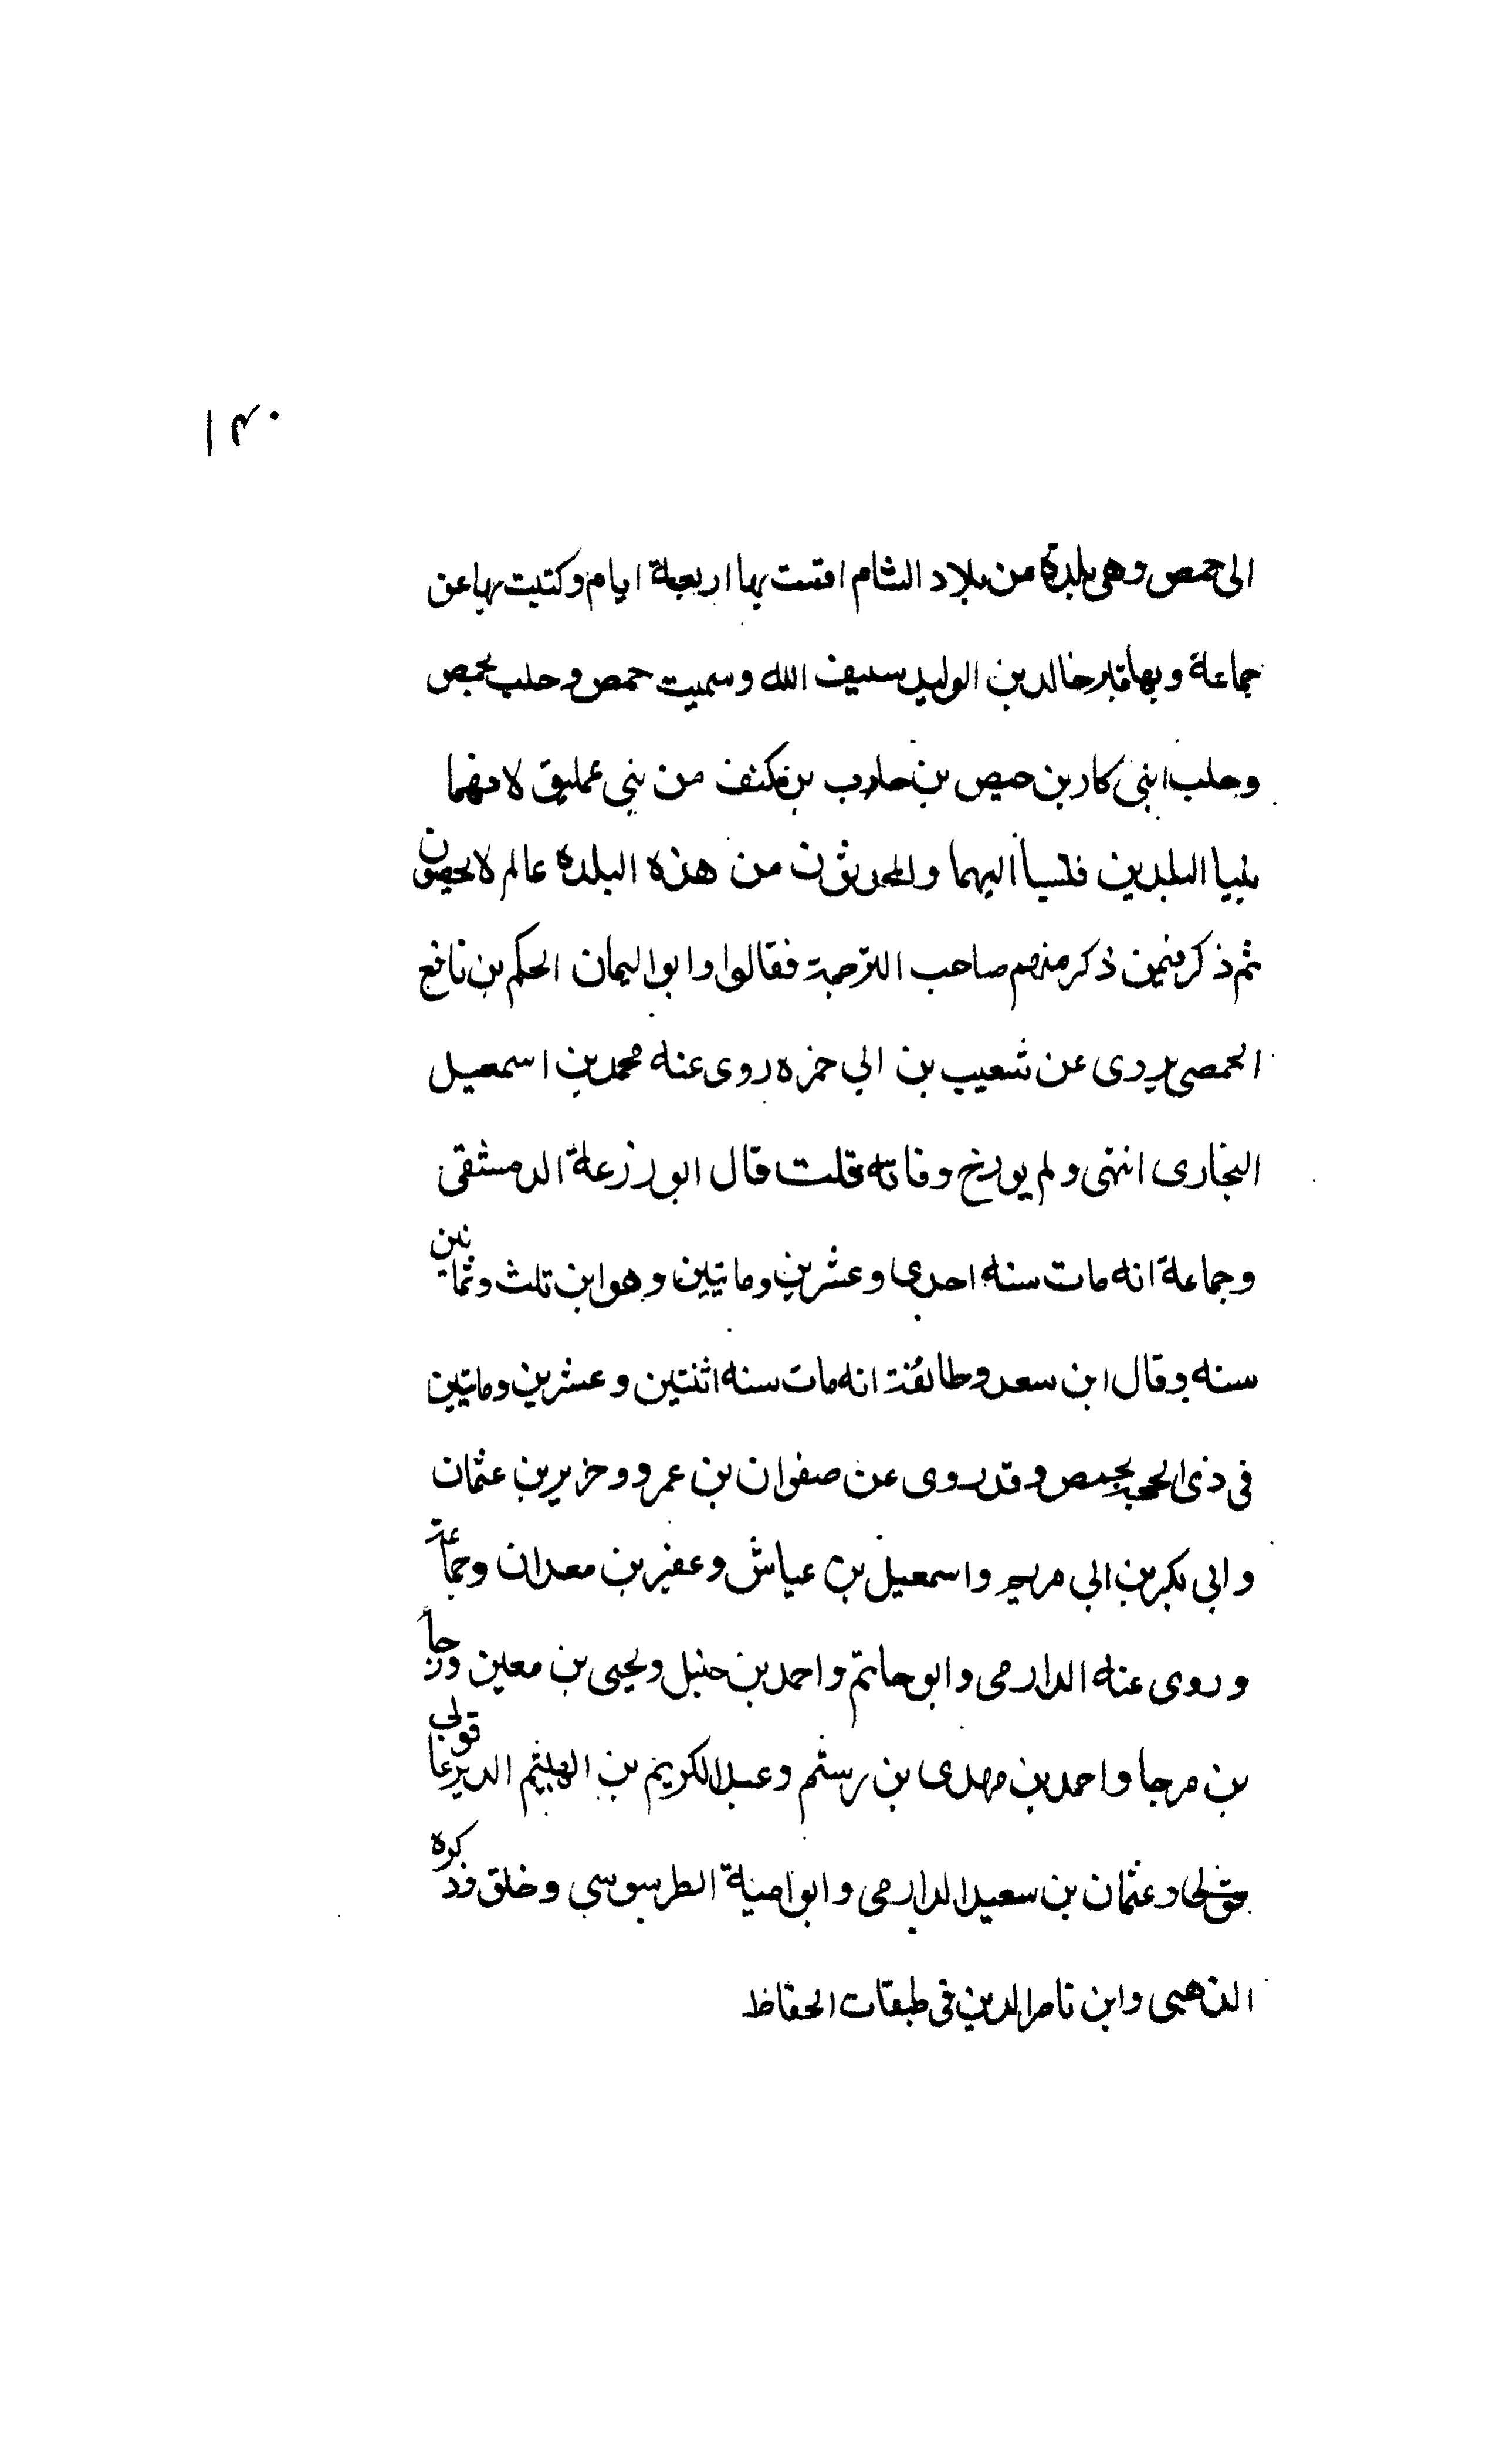 ١٤٠
الى حمص وهى بلدة من بلاد الشام اقمت بها اربعة ايام وكتبت بها عن
جماعة وبها قبر خالد بن الوليد سيف الله وسميت حمص وحلب بحمص
وحلب ابنى كار بن حيص بن حارب بن مكنف من بنى عمليق لانهما
بنيا البلدين فنسبا اليهما والمحدثون من هذه البلدة عالم لا يحصون
ثم ذكر فيمن ذكر منهم صاحب الترجمة فقالوا وابو اليمان الحكم بن نافع
الحمصى يروى عن شعيب بن ابي حمزه روى عنه محمد بن اسمعيل
البخارى انتهى ولم يورخ وفاته قلت قال ابو زرعة الدمشقى
وجماعة انه مات سنه احدى وعشرين وماتيين وهو ابن ثلث وثمانين
سنه وقال ابن سعد وطائفة انه مات سنه اثنتين وعشرين وماتيين
فى ذى الحجه بحمص وقد روى عن صفوان بن عمرو وحزير بن عثمان
وابي بكر بن ابي مريم واسمعيل بن عياش وعفير بن معدان وجماعة
وروى عنه الدارمى وابو حاتم واحمد بن حنبل ويحيى بن معين ورجا
بن مرجا واحمد بن مهدى بن رستم وعبد الكريم بن الهيثم الديرعاقولي
وعثمان بن سعيد الدارمى وابو امية الطرسوسي وخلق وذكره
الذهبى وابن ناصر الدين فى طبقات الحفاظ